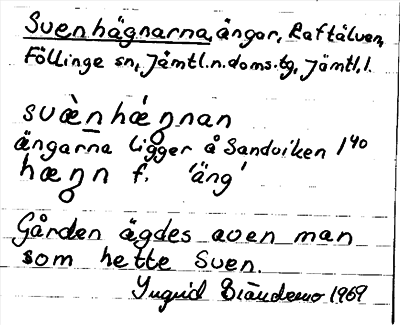 Svenhägnarna, ängar, Raftälven,
Föllinge sn, Jämtl.n.doms.tg, Jämtl.l.
svὰ̀nhæŋnan
ängarna ligger å Sandviken 1⁴⁰
hæŋn f. 'äng'
Gården ägdes aven man
som hette Sven.
Yngrid 1969